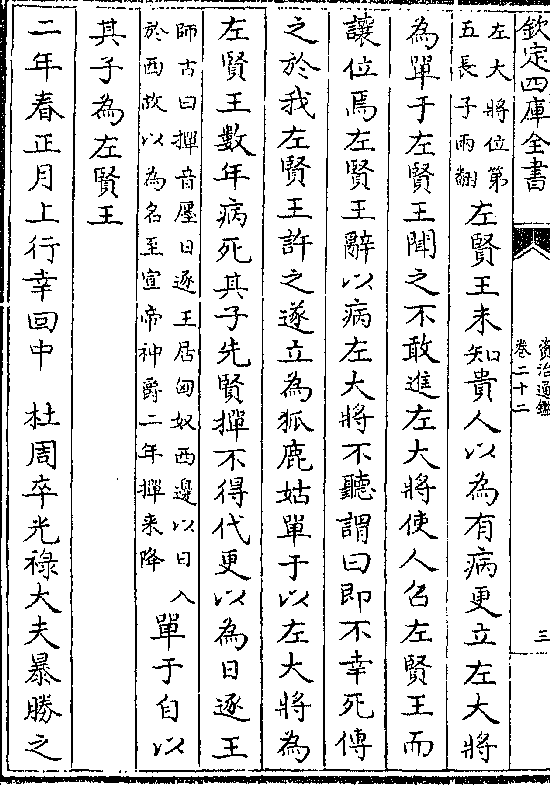 欽定四庫全書
資治通鑑
卷二十二
三
左大將位第
五長子雨翻
左賢王未知貴人以為有病更立左大將
為單于左賢王聞之不敢進左大將使人召左賢王而
讓位焉左賢王辭以病左大將不聽謂曰即不幸死傳
之於我左賢王許之遂立為狐鹿姑單于以左大將為
左賢王數年病死其子先賢撣不得代更以為日逐王
師古曰撣音廛日逐王居匈奴西邊以日入
於西故以為名至宣帝神爵二年撣来降
單于自以
其子為左賢王
二年春正月上行幸回中　杜周卒光祿大夫暴勝之